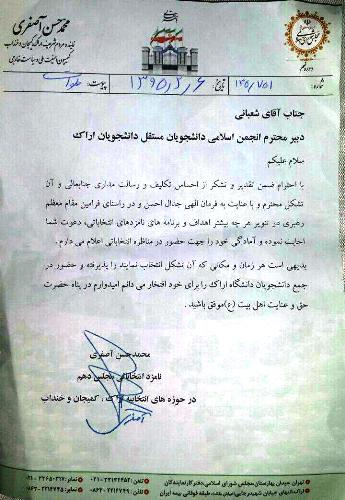 محمدحسن آصفری
نماینده مردم شریف اراک، کمیجان و خنداب
کمیسیون امنیت ملی و سیاست خارجی
شماره:
۱۴۵/۷۵۱
تاریخ:
۱۳۹۵/۲/۶
پیوست:
جناب آقای شعبانی
دبیر محترم انجمن اسلامی دانشجویان مستقل دانشجویان اراک
سلام علیکم
با احترام ضمن تقدیر و تشکر از احساس تکلیف و رسالت مداری جنابعالی و آن
تشکل محترم و با عنایت به فرمان الهی جدال احسن و در راستای فرامین مقام معظم
رهبری در تنویر هر چه بیشتر اهداف و برنامه های نامزدهای انتخاباتی، دعوت شما
اجابت نموده و آمادگی خود را جهت حضور در مناظره انتخاباتی اعلام می دارم.
بدیهی است هر زمان و مکانی که آن تشکل انتخاب نمایند را پذیرفته و حضور در
جمع دانشجویان دانشگاه اراک را برای خود افتخار می دانم امیدوارم در پناه حضرت
حق و عنایت اهل بیت (ع) موفق باشید.
محمدحسن آصفری
نامزد انتخاباتی مجلس دهم
در حوزه های انتخابیه اراک، کمیجان و خنداب
تهران: میدان بهارستان، مجلس شورای اسلامی، دفتر کار نمایندگان
تلفن:
نمابر: